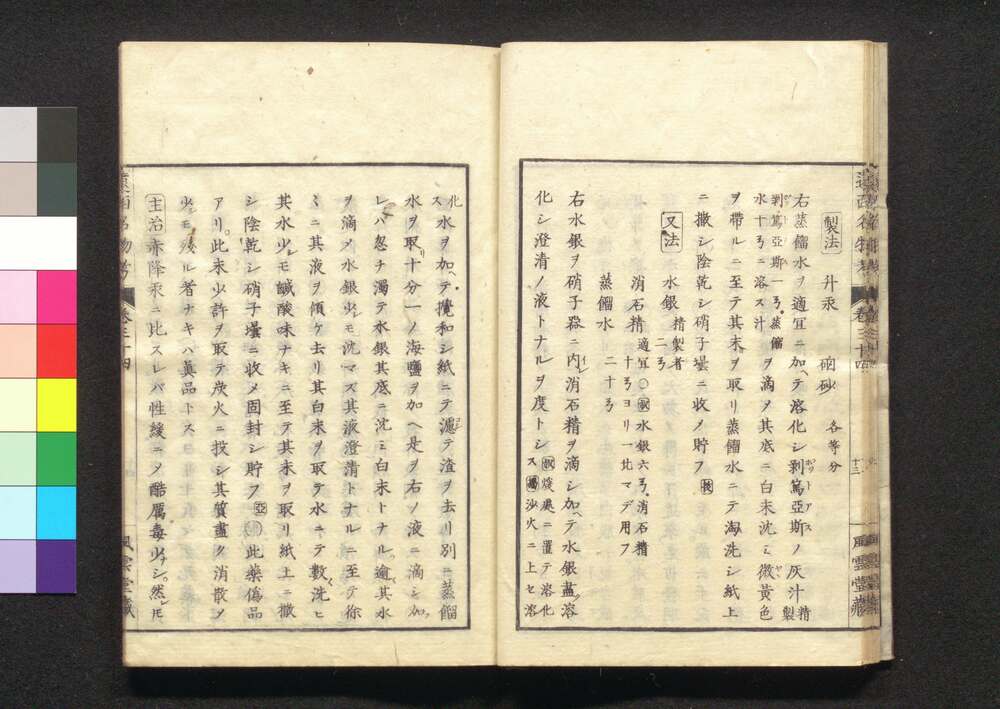 製法 升汞 硇砂 各等分
右蒸餾水ヲ適宜ニ加ヘテ溶化シ剥篤亞斯ノ灰汁精製
剥篤亞斯一ヲ蒸餾水十ヲニ溶ス汁ヲ滴メ其底ニ白末沈ミ微黄色
ヲ帯ルニ至テ其末ヲ取リ蒸餾水ニテ淘洗シ紙上
ニ撒シ陰乾シ硝子壜ニ收メ貯フ
又法 水銀 精製者二ヲ
消石精 適宜〇水銀六ヲ消石精十ヲヨリ一比マデ用フ
蒸餾水 二十ヲ
右水銀ヲ硝子器ニ内レ消石精ヲ滴シ加ヘテ水銀盡溶
化シ澄清ノ液トナルヲ度トシ煖處ニ置テ溶化ス 沙火ニ上セ溶
化ス 水ヲ加ヘテ攪和シ紙ニテ濾テ渣ヲ去リ別ニ蒸餾
水ヲ取リ十分一ノ海鹽ヲ加ヘ是ヲ右ノ液ニ滴シ加
レバ忽チ濁テ水銀其底ニ沈ミ白末トナル逾其水
ヲ滴メ水銀少シモ沈マズ其液澄清トナルニ至テ徐
ミニ其液ヲ傾ケ去リ其白末ヲ取テ水ニテ數洗ヒ
其水少シモ鹹酸味ナキニ至テ其末ヲ取リ紙上ニ撒
シ陰乾シ硝子壜ニ收メ固封シ貯フ 亞 此藥偽品
アリ此末少許ヲ取テ炭火ニ投シ其質盡ク消散メ
少シモ殘ル者ナキハ眞品トス
主治赤降汞ニ比スレバ性緩ニメ酷厲毒少ナシ然レモ
遠西名物考 卷三十四
風雲堂藏